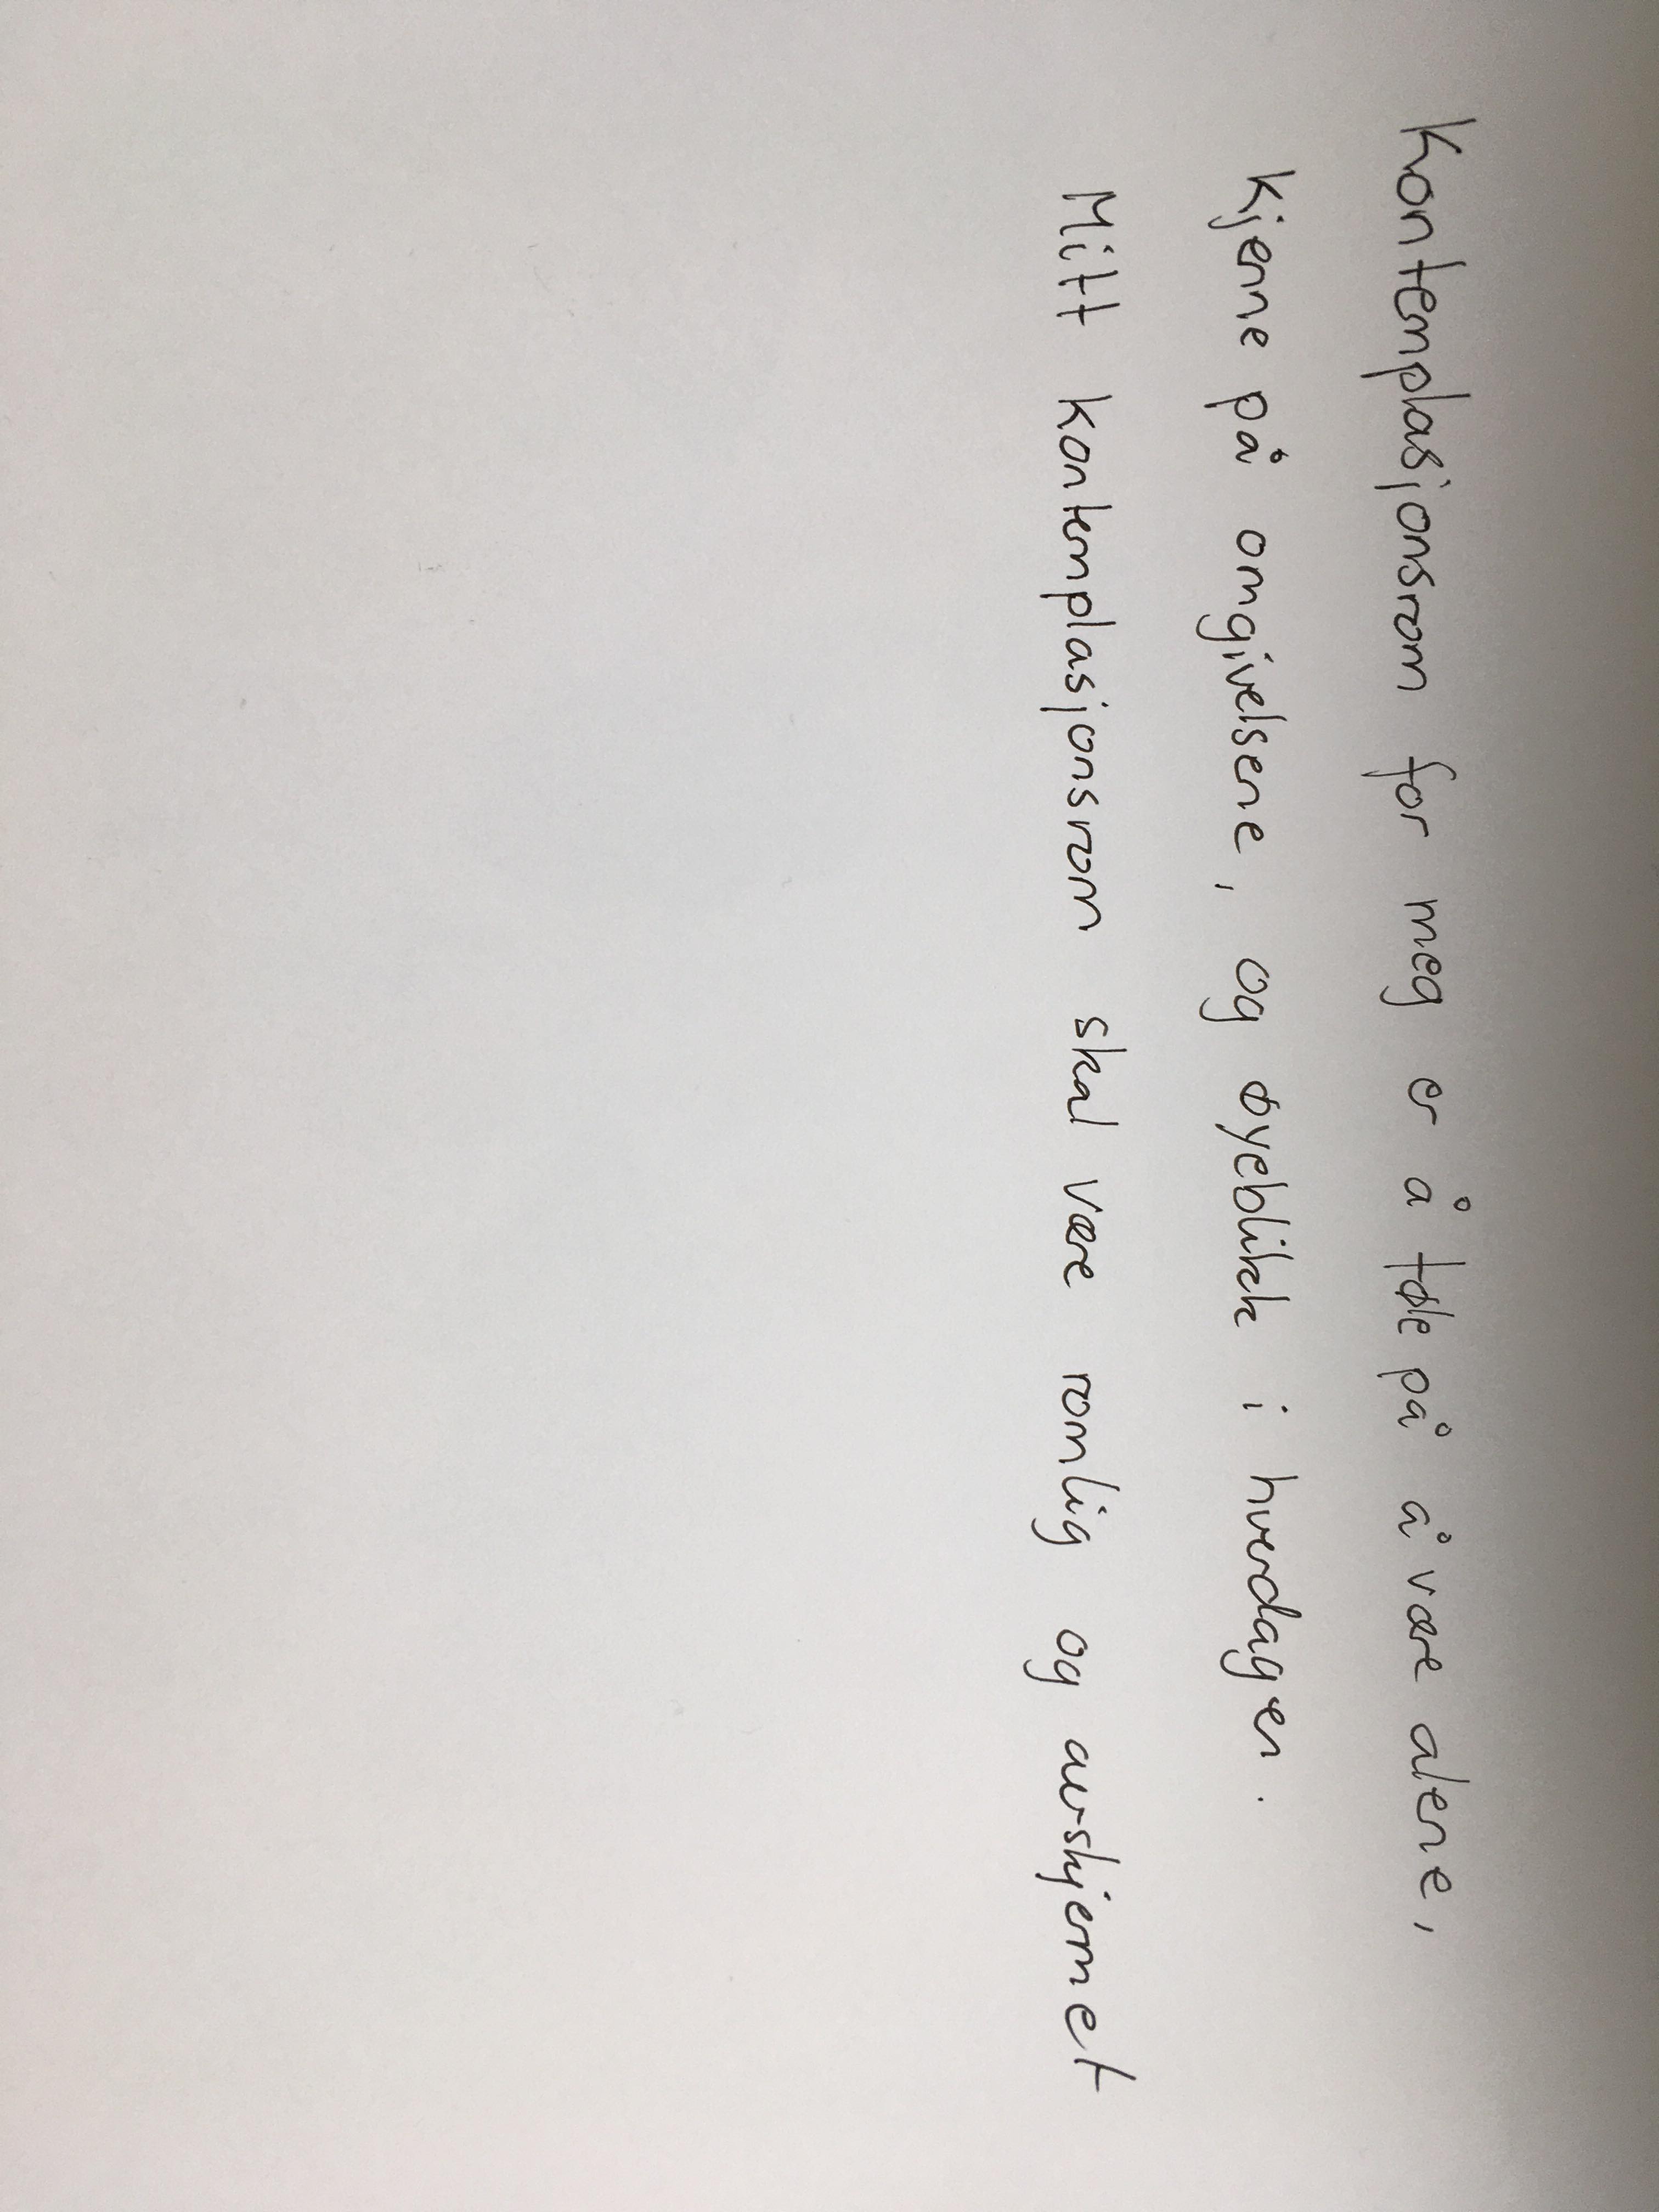 Kontemplasjonsrom for meg er å føle på å være alene,
kjenne på omgivelsene, og øyeblikk i hverdagen.
Mitt kontemplasjonsrom skal være romlig og avskjermet